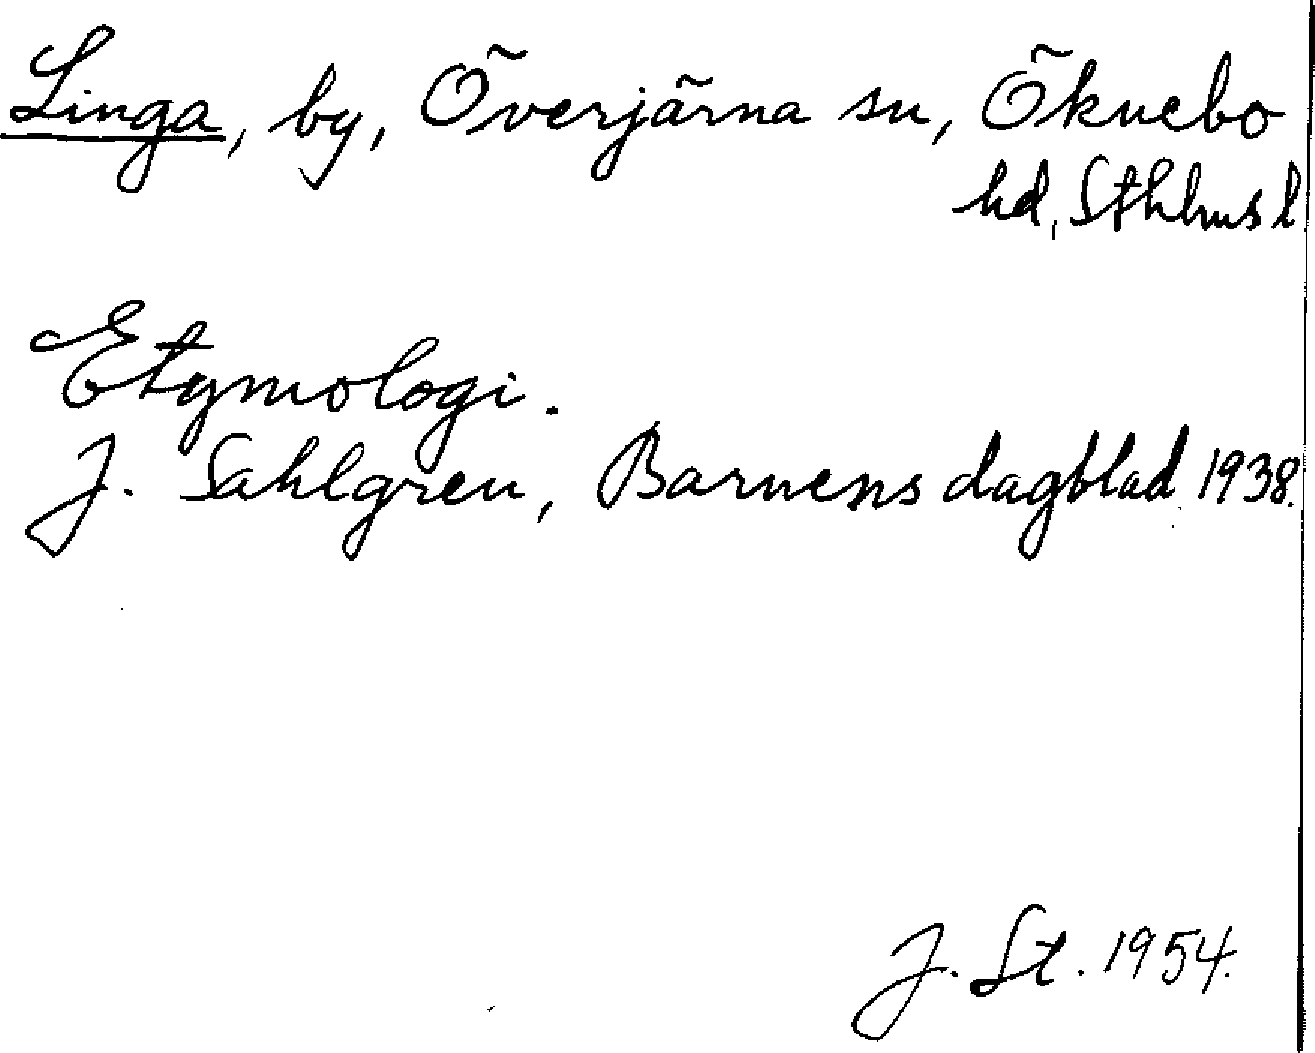 Linga, by, Överjärna sn, Öknebo
hd, Sthlms l
Etymologi.
J. Sahlgren, Barnens dagblad 1938.
J. St. 1954.